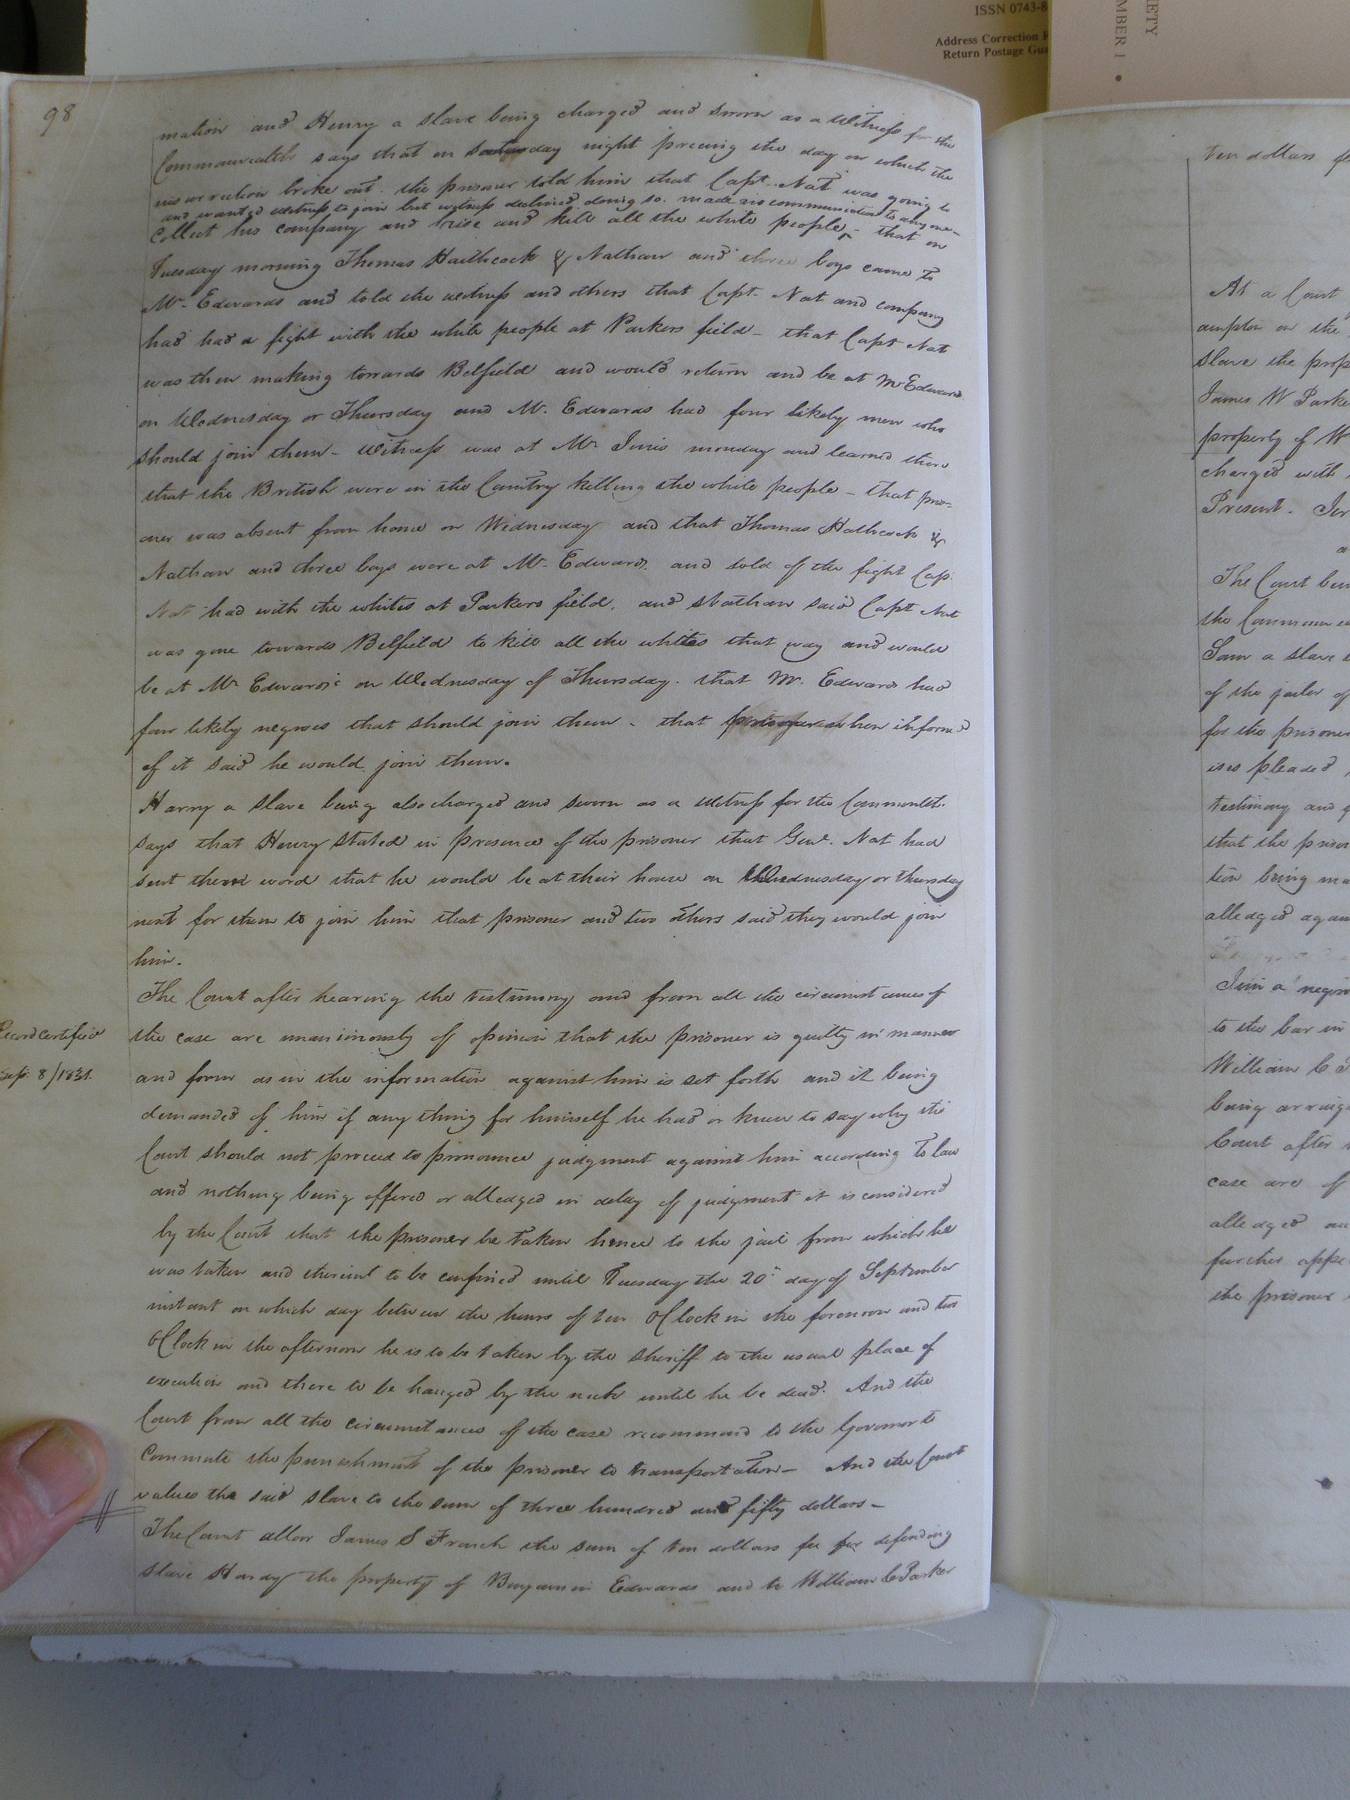 ISSN 0743-8
Address Correction R
Return Postage Gua
ETY
MBER 1 •
98
mation and Henry a slave being charged and sworn as a Witness for the
Commonwealth says that on Saturday night preceding the day on which the
insurrection broke out. the prisoner told him that Capt. Nat was going to
and wanted witness to join but witness declined doing so. made no communication to any one -
Collect his company and rise and kill all the white people, - that on
Tuesday morning Thomas Haithcock & Nathan and three boys came to
Mr. Edwards and told the witness and others that Capt. Nat and company
had had a fight with the white people at Parkers field - that Capt Nat
was then making towards Belfield and would return and be at Mr Edwards
on Wednesday or Thursday and Mr. Edwards had four likely men who
should join them - Witness was at Mr monday and learned there
that the British were in the Country killing the white people - that pris-
oner was absent from home on Wednesday and that Thomas Hathcock &
Nathan and three boys were at Mr. Edwards and told of the fight Cap.
Nat had with the whites at Parkers field, and Nathan said Capt Nat
was gone towards Belfield to kill all the whites that way and would
be at Mr Edwards's on Wednesday of Thursday. that Mr. Edwards had
four likely negroes that should join them - that prisoner when informed
of it said he would join them.
Harry a slave being also charged and sworn as a witness for the Commonlth.
says that Henry stated in presence of the prisoner that Genl. Nat had
sent them word that he would be at their house on Wednesday or thursday
next for them to join him that prisoner and two others said they would join
him.
The Court after hearing the testimony and from all the circumstances of
Record certified
the case are unanimously of opinion that the prisoner is guilty in manner
Sep: 8/1831.
and form as in the information against him is set forth and it being
demanded of him if any thing for himself he had or knew to say why the
Court should not proceed to pronounce judgment against him according to law
and nothing being offered or alledged in delay of judgment it is considered
by the Court that the prisoner be taken hence to the jail from which he
was taken and therein to be confined until Tuesday the 20th day of September
instant on which day between the hours of ten OClock in the forenoon and two
OClock in the afternoon he is to be taken by the sheriff to the usual place of
execution and there to be hanged by the neck until he be dead. And the
Court from all the circumstances of the case recommend to the Governor to
Commute the punishment of the prisoner to transportation - And the Court
values the said slave to the sum of three hundred and fifty dollars -
The Court allow James S French the sum of ten dollars fee for defending
slave Hardy the property of Benjamin Edwards and to William C Parker
ten dollars f
At a Court
ampton on the
slave the prop
James W Parke
property of W
charged with
Present. Jer
The Court bein
the Common w
Sam a slave
of the jailer of
for the prisoner
pleaded
testimony and
that the prison
tion being ma
alledged again
Jim a negro
to the bar in
William C P
being arraign
Court after
case are of
alledged
further appe
the prisoner